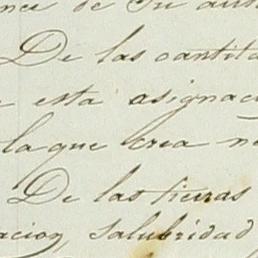 de su
De las cantida
esta asignac
la que crea n
De las tierras
acion, salubridad